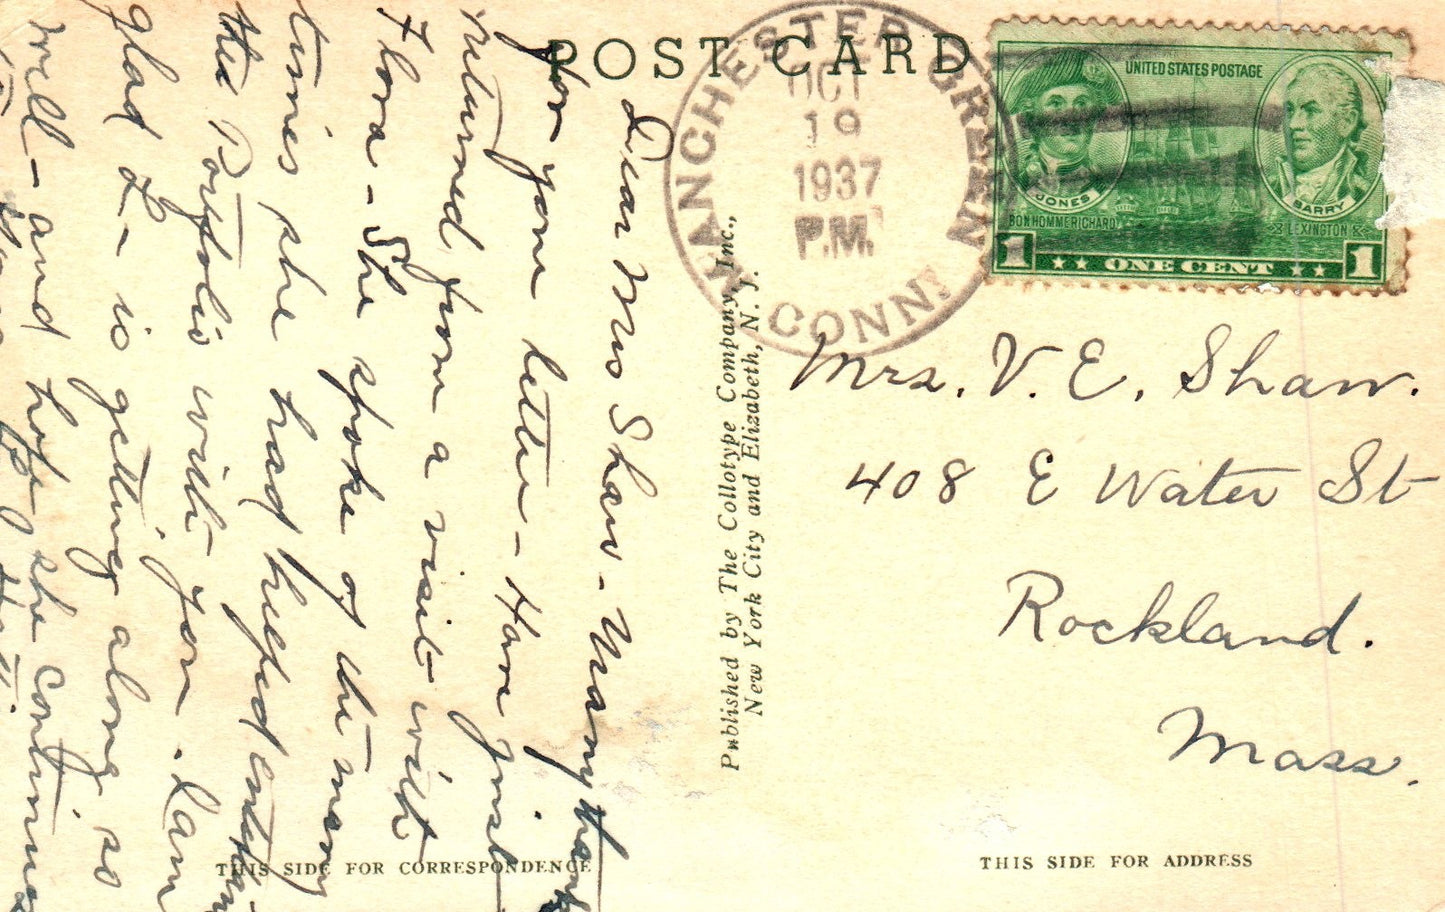 POST CARD
MANCHESTER GREEN
CONN.
OCT
19
1937
P.M.
UNITED STATES POSTAGE
JONES
BARRY
BON HOMME RICHARD
LEXINGTON
1 ONE CENT 1
Dear Mrs Shaw - Many thanks
for your letter - Have just
returned from a visit with
Flora - She spoke of the many
times she had helped
the Portfolio with you. I am
glad L- is getting along so
well - and hope she continues
Published by The Collotype Company, Inc.,
New York City and Elizabeth, N. J.
Mrs. V. E. Shaw.
408 E Water St
Rockland.
Mass.
THIS SIDE FOR CORRESPONDENCE
THIS SIDE FOR ADDRESS